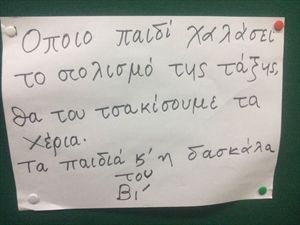 Οποιο παιδί χαλάσει
το στολισμό της τάξης,
θα του τσακίσουμε τα
χέρια.
Τα παιδιά κ' η δασκάλα
του
Β1'